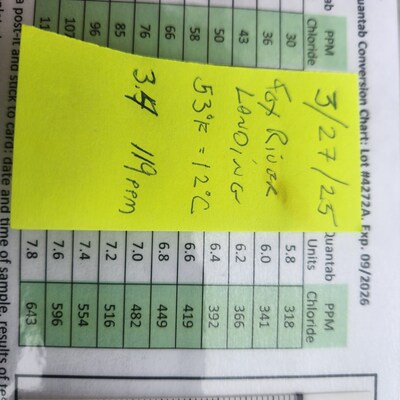 Quantab Conversion Chart: Lot #4272A. Exp. 09/2026
PPM
Chloride
30
36
43
50
58
66
76
85
96
3/27/25
Fox RIVER
LANDING
53°F = 12°C
3.4 119 ppm
Quantab Units
PPM Chloride
5.8 318
6.0 341
6.2 366
6.4 392
6.6 419
6.8 449
7.0 482
7.2 516
7.4 554
7.6 596
7.8 643
post-it and stick to card: date and time of sample, results of